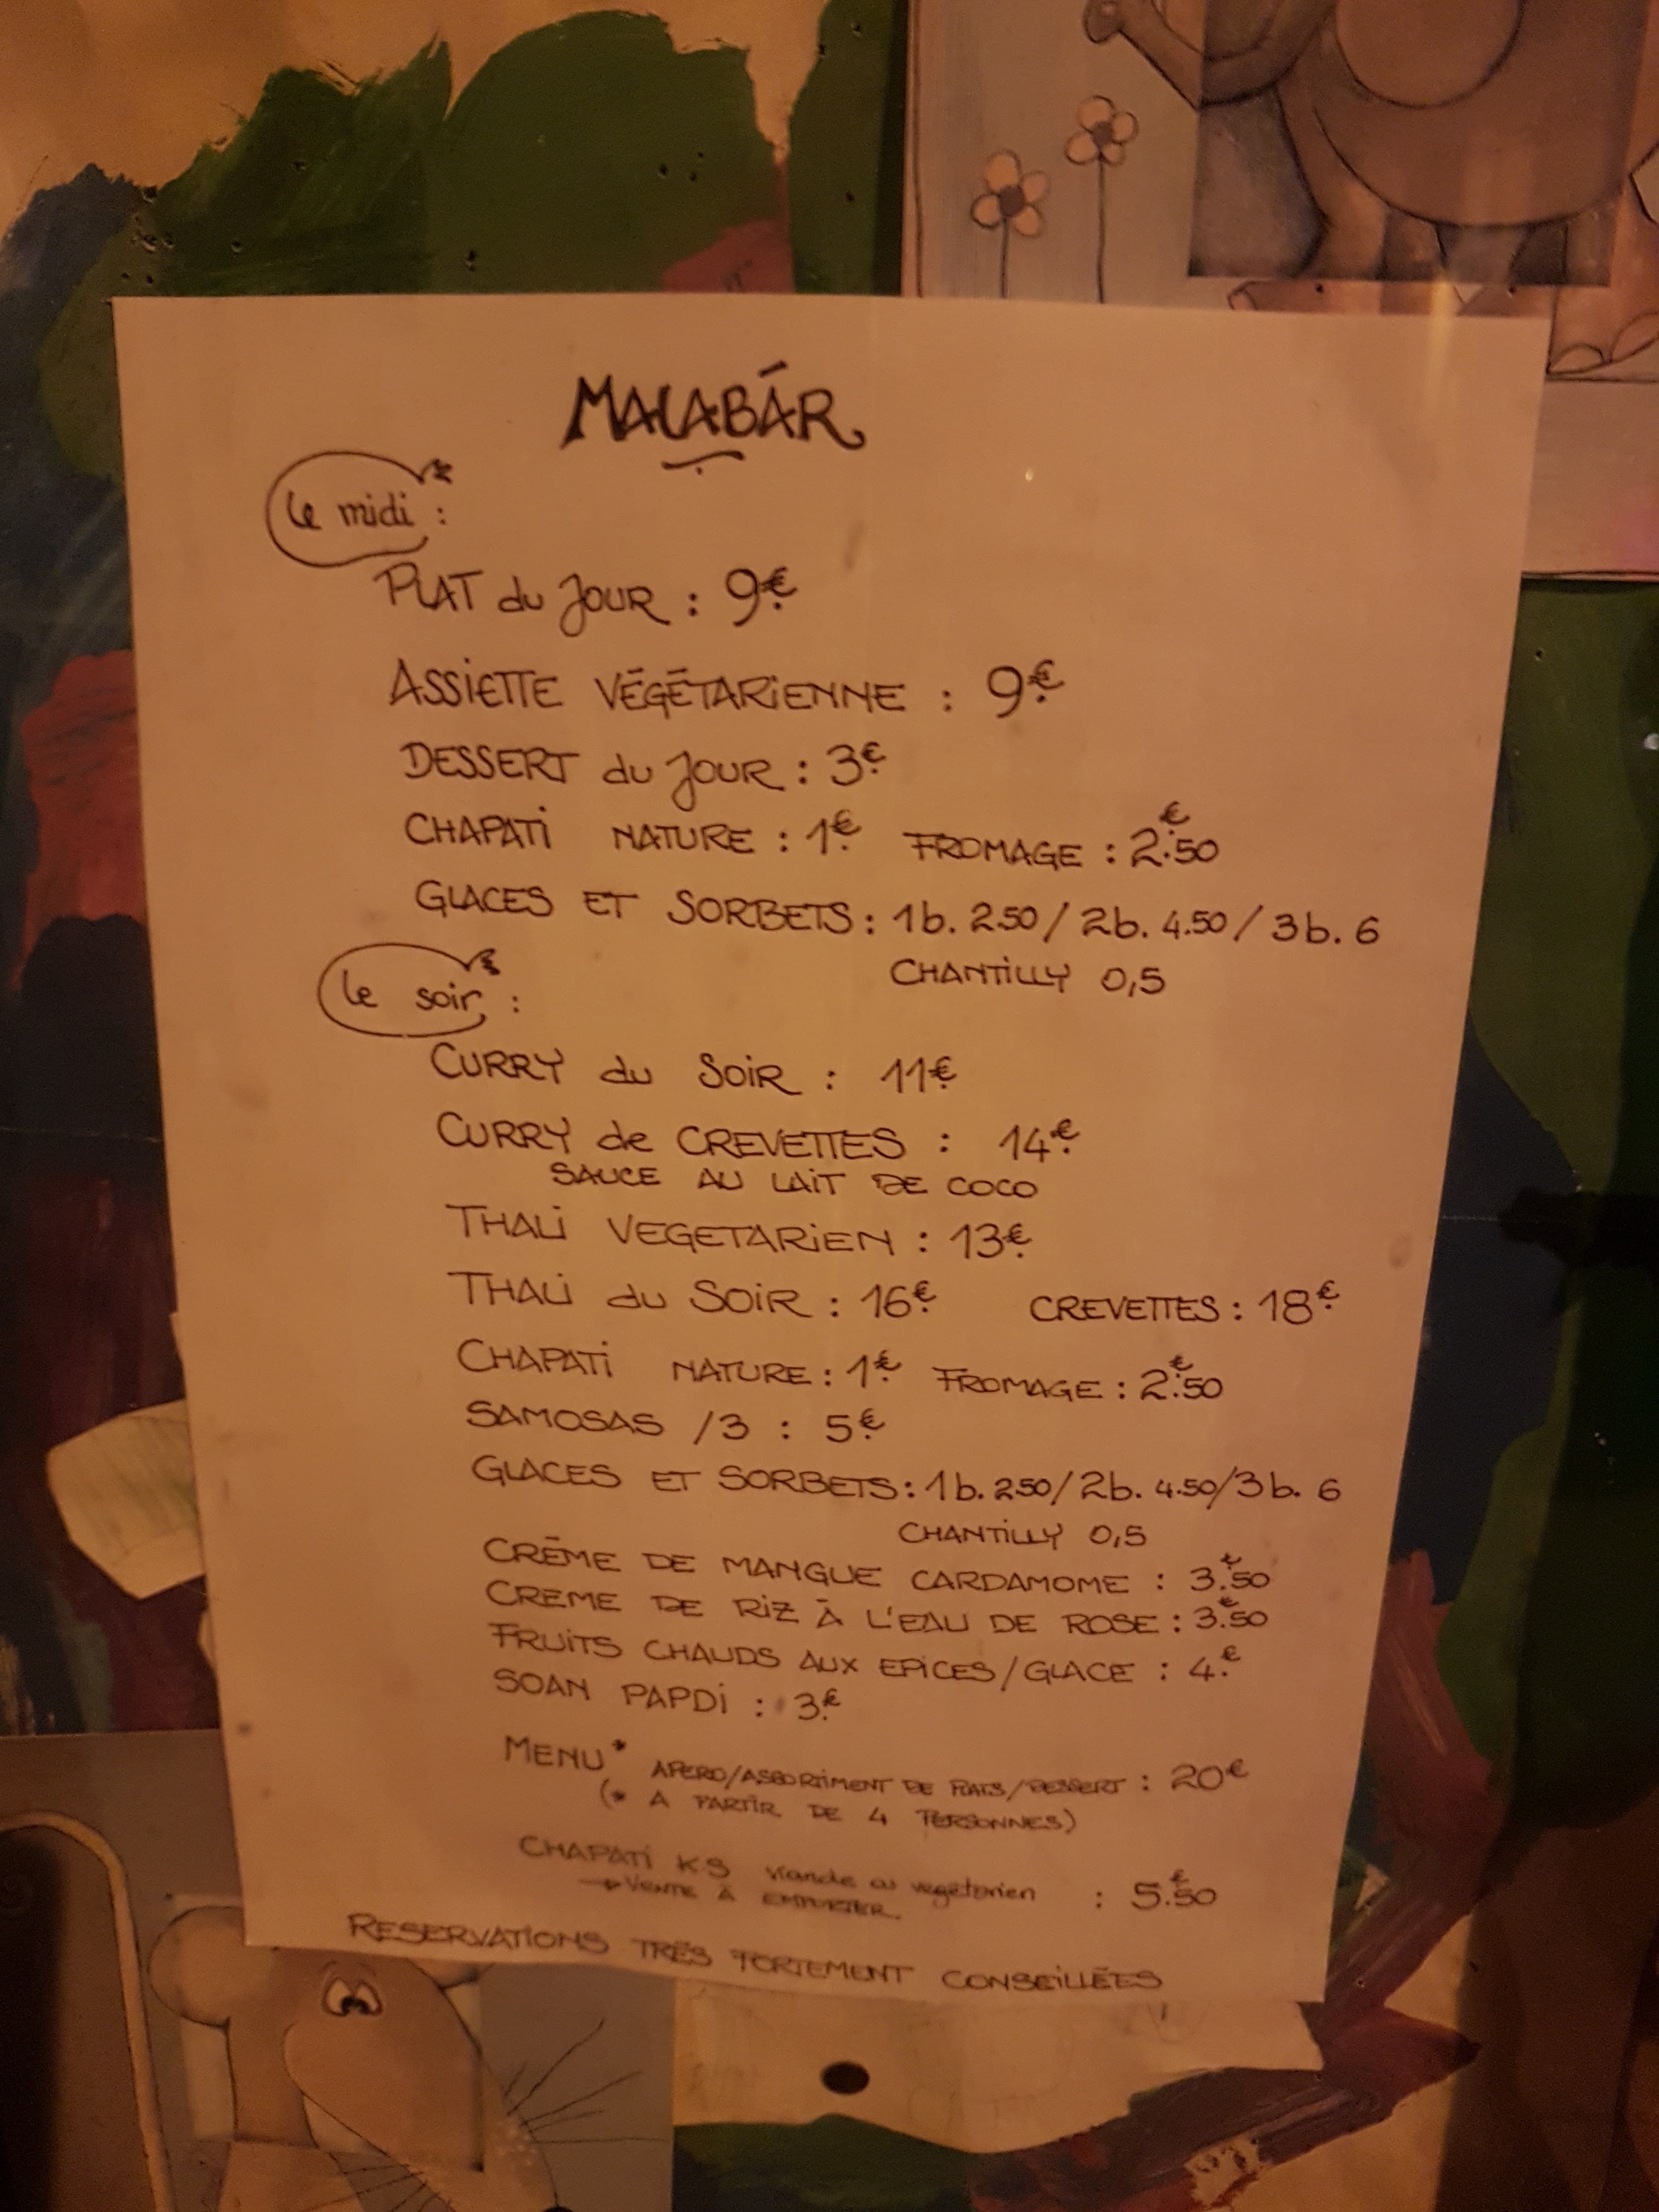 MALABÁR
le midi :
PLAT du JOUR : 9€
ASSIETTE VÉGÉTARIENNE : 9€
DESSERT du JOUR : 3€
CHAPATI NATURE : 1€ FROMAGE : 2€.50
GLACES ET SORBETS : 1b. 2.50 / 2b. 4.50 / 3b. 6
CHANTILLY 0,5
le soir :
CURRY du SOIR : 11€
CURRY de CREVETTES : 14€
SAUCE AU LAIT DE COCO
THALI VEGETARIEN : 13€
THALI du SOIR : 16€ CREVETTES : 18€
CHAPATI NATURE : 1€ FROMAGE : 2€.50
SAMOSAS /3 : 5€
GLACES ET SORBETS : 1b. 2.50 / 2b. 4.50 / 3b. 6
CHANTILLY 0,5
CRÈME DE MANGUE CARDAMOME : 3€.50
CREME DE RIZ À L'EAU DE ROSE : 3€.50
FRUITS CHAUDS AUX EPICES / GLACE : 4€
SOAN PAPDI : 3€
MENU* APERO/ASSORTIMENT DE PLATS/DESSERT : 20€
(* A PARTIR DE 4 PERSONNES)
CHAPATI K.S viande ou vegetarien : 5€.50
→ VENTE À EMPORTER
RESERVATIONS TRÈS FORTEMENT CONSEILLÉES